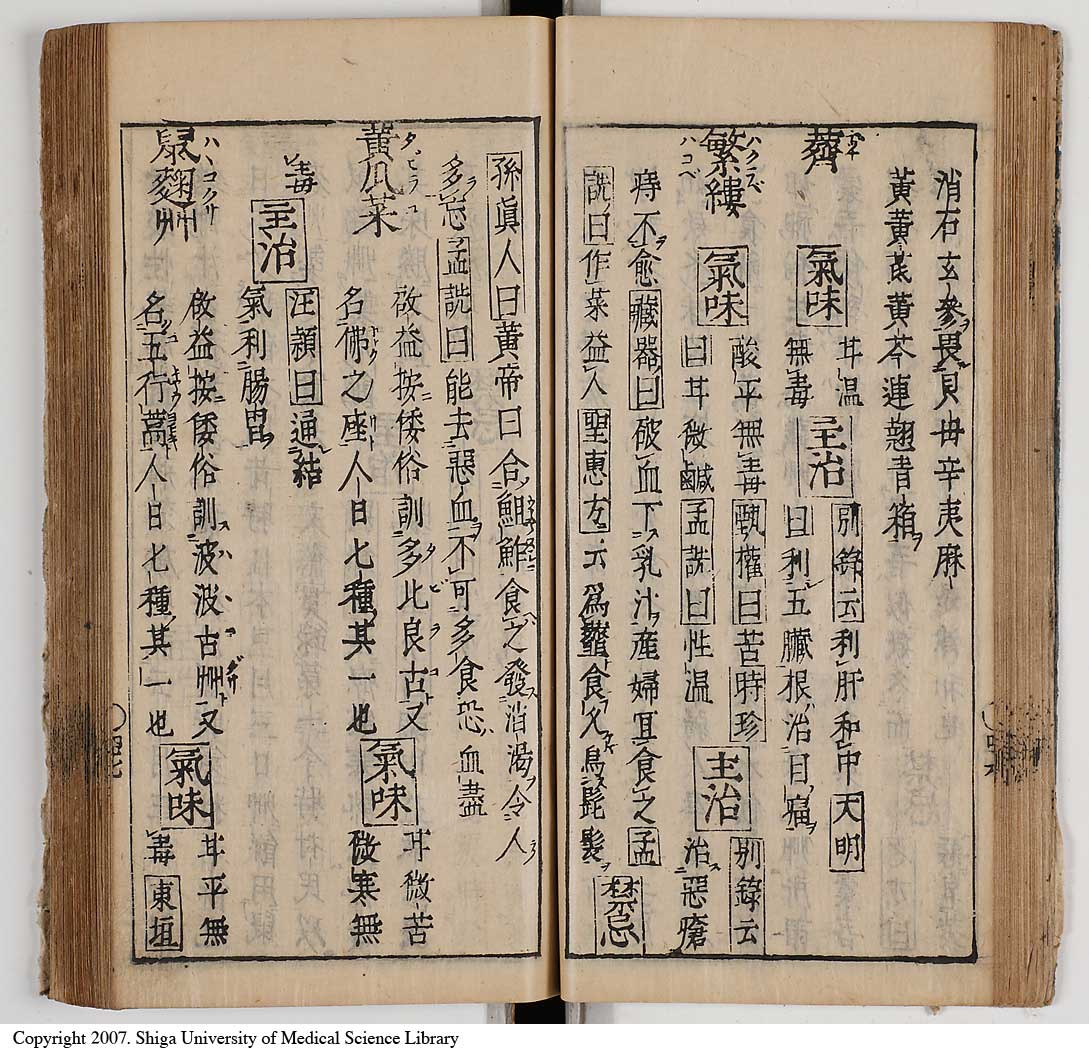 消石玄參畏貝母辛夷麻
黃黃茋黃芩連翹青箱
薺 氣味 甘溫
無毒 主治 別錄云利肝和中大明
曰利五臟根治目痛
繁縷 ハコベ 氣味 酸平無毒甄權曰苦時珍
曰甘微鹹孟詵曰性溫 主治 別錄云
治惡瘡
痔不愈藏器曰破血下乳汁產婦宜食之孟
詵曰作菜益人聖惠方云爲虀食久烏髭髮 禁忌
孫眞人曰黃帝曰合鮓食之發消渴令人
多忘孟詵曰能去惡血不可多食恐血盡
黃瓜菜 啟益按倭俗訓多比良古又
名佛之座人日七種其一也 氣味 甘微苦
微寒無
毒 主治 汪穎曰通結
氣利腸胃
鼠麴艸 ハヽコクサ 啟益按倭俗訓波波古艸又
名五行蒿人日七種其一也 氣味 甘平無
毒東垣
四七
Copyright 2007. Shiga University of Medical Science Library